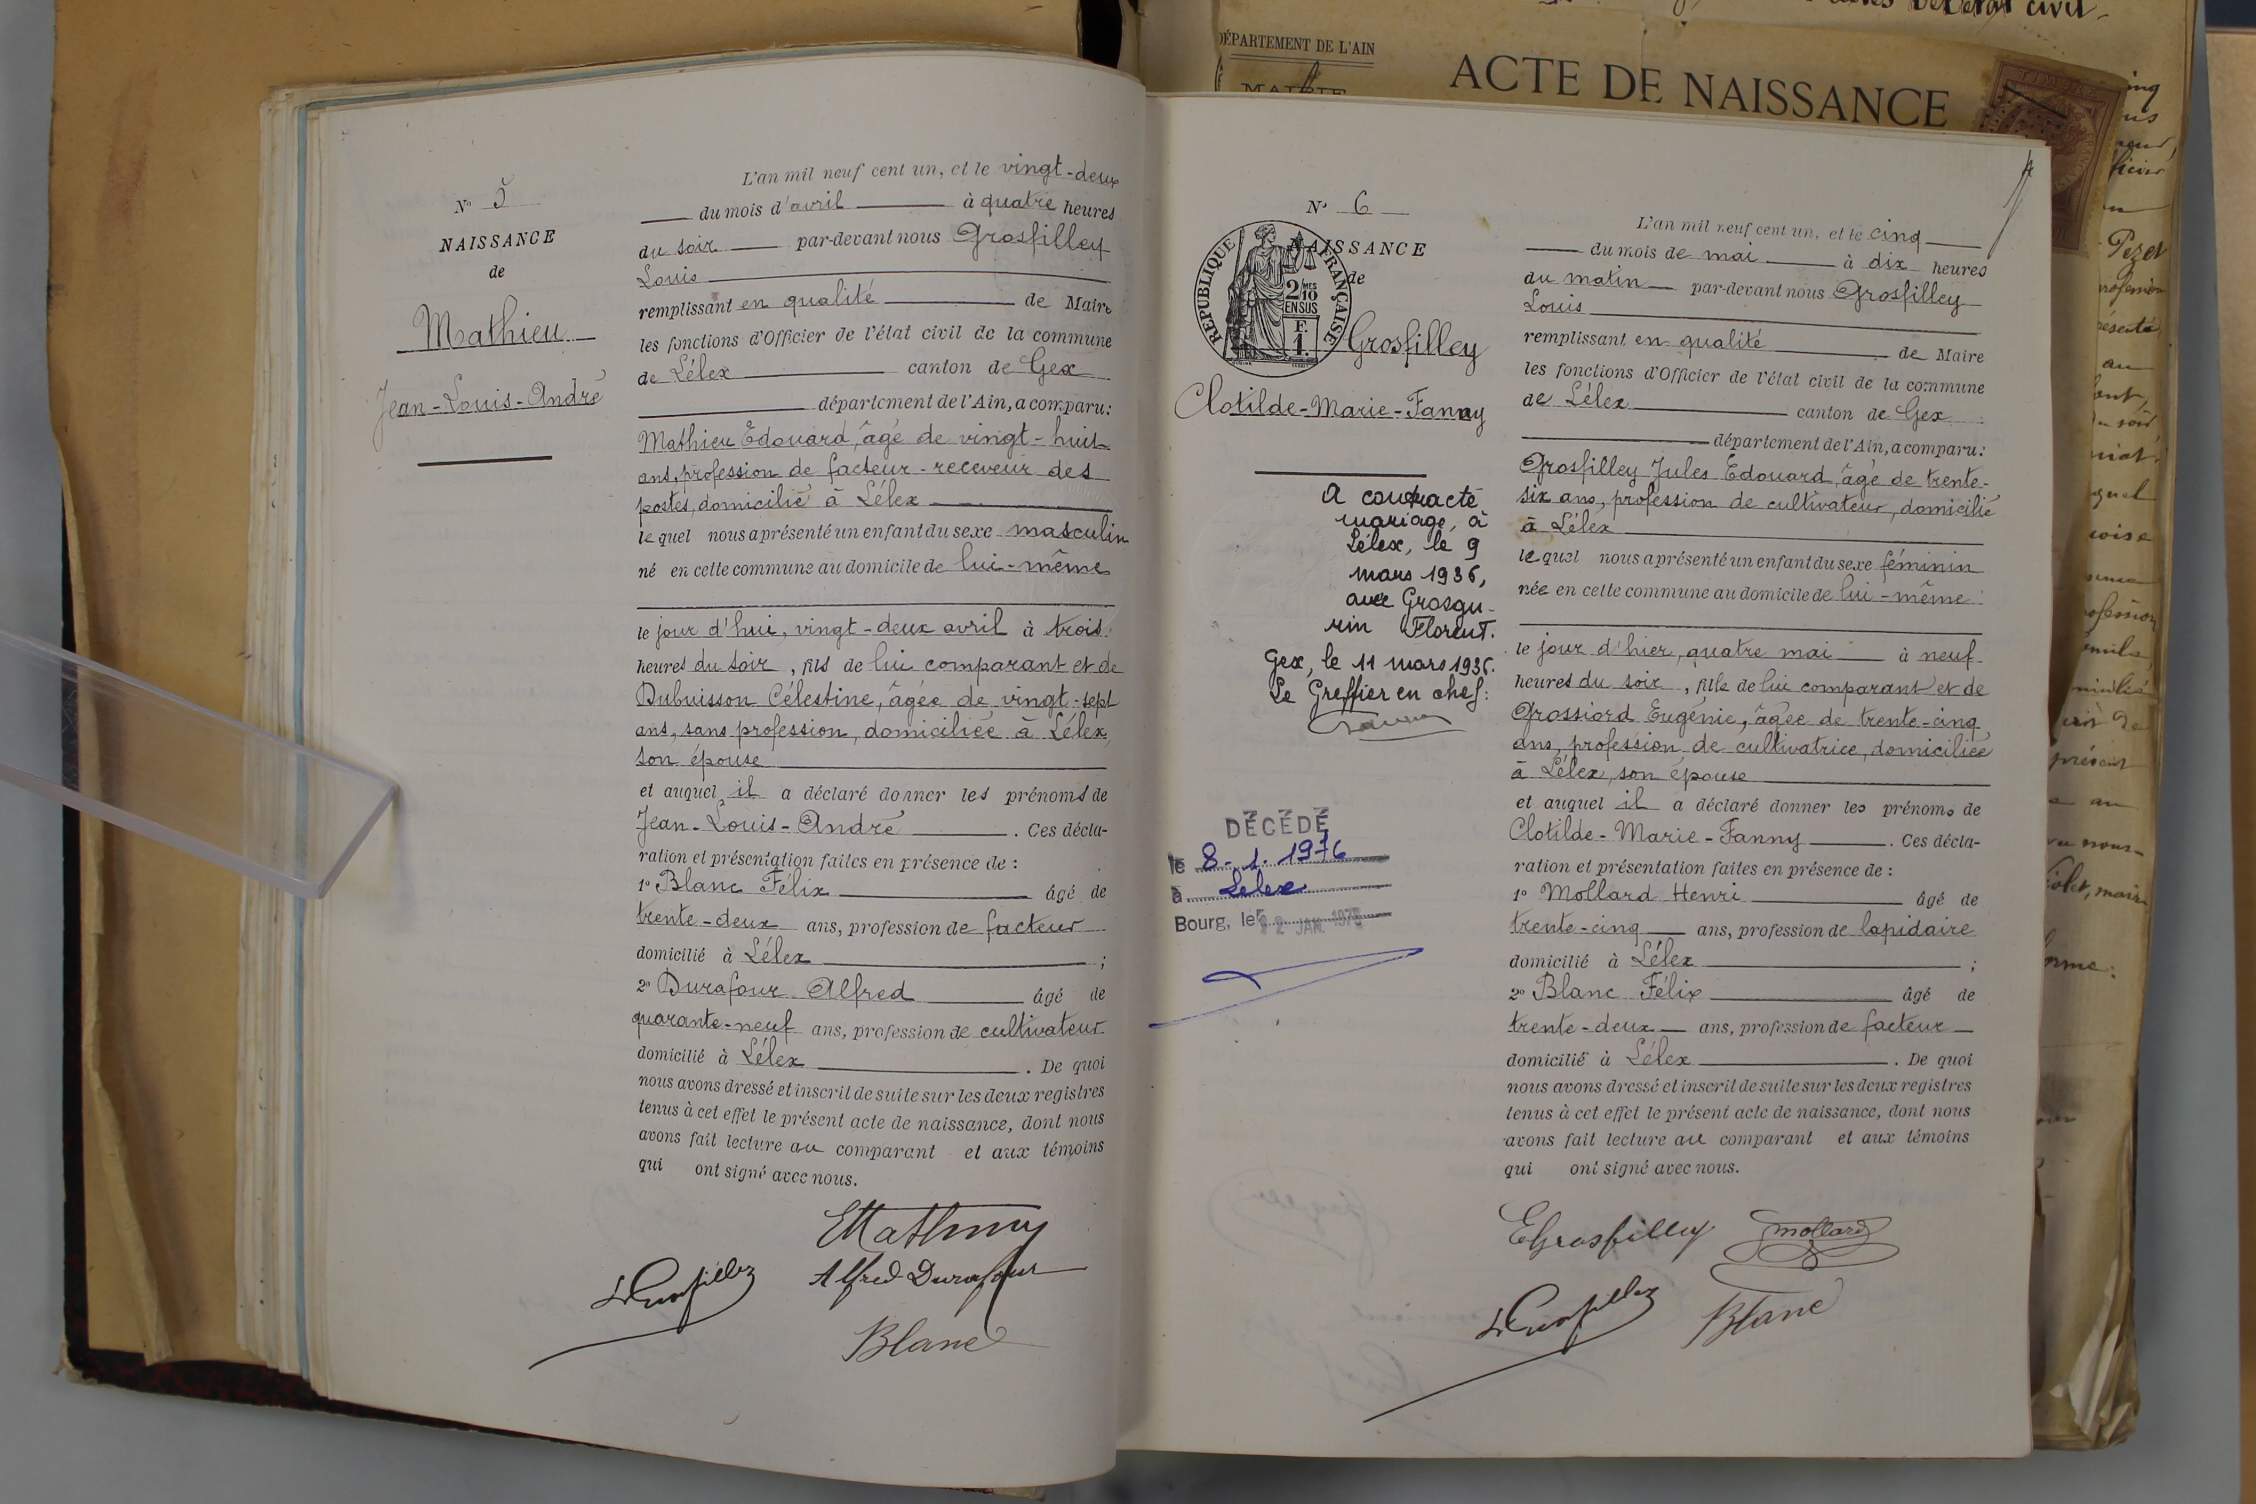 N° 5
NAISSANCE
de
Mathieu
Jean-Louis-André
L'an mil neuf cent un, et le vingt-deux
du mois d'avril à quatre heures
du soir par-devant nous Grosfilley
Louis
remplissant en qualité de Maire
les fonctions d'Officier de l'état civil de la commune
de Lélex canton de Gex
département de l'Ain, a comparu:
Mathieu Edouard, âgé de vingt-huit
ans, profession de facteur-receveur des
postes, domicilié à Lélex
lequel nous a présenté un enfant du sexe masculin
né en cette commune au domicile de lui-même
le jour d'hui, vingt-deux avril à trois
heures du soir, fils de lui comparant et de
Dubuisson Célestine, âgée de vingt-sept
ans, sans profession, domiciliée à Lélex,
son épouse
et auquel il a déclaré donner les prénoms de
Jean-Louis-André. Ces décla-
ration et présentation faites en présence de :
1° Blanc Félix âgé de
trente-deux ans, profession de facteur
domicilié à Lélex ;
2° Durafour Alfred âgé de
quarante-neuf ans, profession de cultivateur
domicilié à Lélex. De quoi
nous avons dressé et inscrit de suite sur les deux registres
tenus à cet effet le présent acte de naissance, dont nous
avons fait lecture au comparant et aux témoins
qui ont signé avec nous.
EMathieu
LGrosfilley
Alfred Durafour
Blanc
DÉPARTEMENT DE L'AIN
MAIRIE
ACTE DE NAISSANCE
N° 6
NAISSANCE
de
RÉPUBLIQUE FRANÇAISE
2/MES
10
EN SUS
F.
1.
Grosfilley
Clotilde-Marie-Fanny
A contracté
mariage, à
Lélex, le 9
mars 1936,
avec Grosgu-
rin Florent.
Gex, le 11 mars 1936.
Le Greffier en chef:
DÉCÉDÉ
le 8. 1. 1976
à Lélex
Bourg, le 12 JAN. 1976
L'an mil neuf cent un, et le cinq
du mois de mai à dix heures
du matin par-devant nous Grosfilley
Louis
remplissant en qualité de Maire
les fonctions d'Officier de l'état civil de la commune
de Lélex canton de Gex
département de l'Ain, a comparu:
Grosfilley Jules Edouard, âgé de trente-
six ans, profession de cultivateur, domicilié
à Lélex
lequel nous a présenté un enfant du sexe féminin
née en cette commune au domicile de lui-même
le jour d'hier, quatre mai à neuf
heures du soir, fille de lui comparant et de
Grossiord Eugénie, âgée de trente-cinq
ans, profession de cultivatrice, domiciliée
à Lélex, son épouse
et auquel il a déclaré donner les prénoms de
Clotilde-Marie-Fanny. Ces décla-
ration et présentation faites en présence de :
1° Mollard Henri âgé de
trente-cinq ans, profession de lapidaire
domicilié à Lélex ;
2° Blanc Félix âgé de
trente-deux ans, profession de facteur
domicilié à Lélex. De quoi
nous avons dressé et inscrit de suite sur les deux registres
tenus à cet effet le présent acte de naissance, dont nous
avons fait lecture au comparant et aux témoins
qui ont signé avec nous.
EGrosfilley
Mollard
LGrosfilley
Blanc